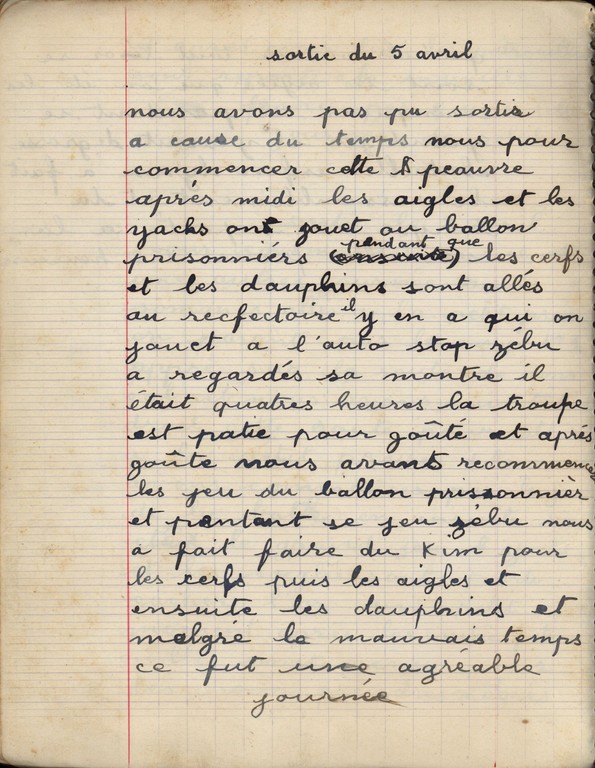 sortie du 5 avril
nous avons pas pu sortir
a cause du temps nous pour
commencer cette peauvre
aprés midi les aigles et les
yacks ont jouet au ballon
pendant que
prisonniérs (ensuite) les cerfs
et les dauphins sont allés
au recfectoire il y en a qui on
jouet a l'auto stop zébu
a regardés sa montre il
était quatres heures la troupe
est patie pour goûté et aprés
goûte nous avants recommencer
les jeu du ballon prisonnièr
et pentant se jeu zébu nous
a fait faire du Kim pour
les cerfs puis les aigles et
ensuite les dauphins et
malgré le mauvais temps
ce fut une agréable
journée